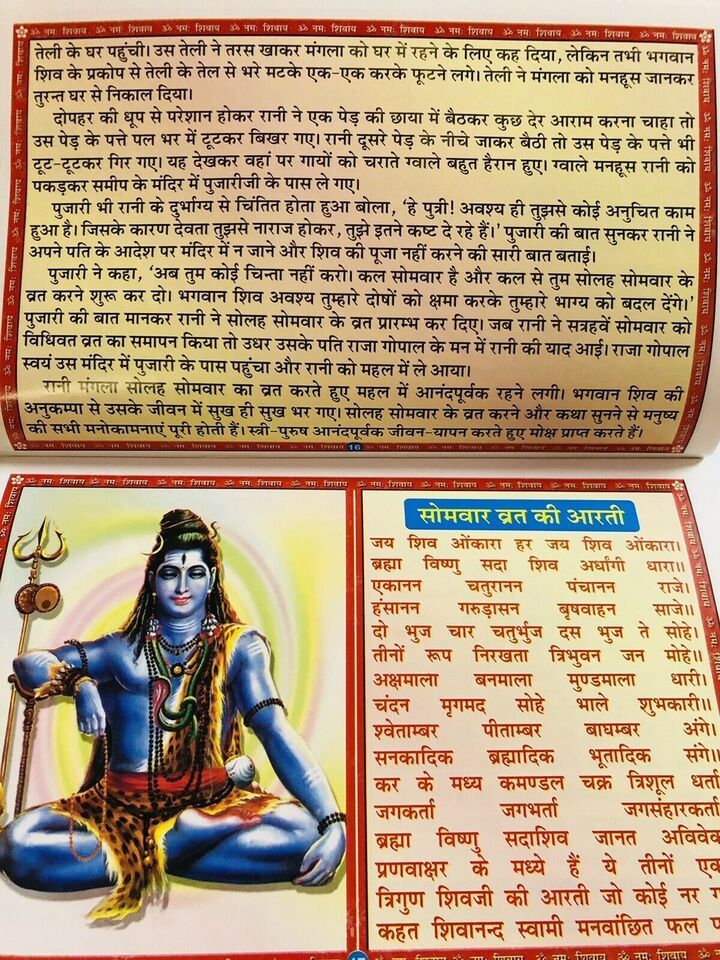 ॐ नमः शिवाय ॐ नमः शिवाय ॐ नमः शिवाय ॐ नमः शिवाय ॐ नमः शिवाय ॐ नमः शिवाय ॐ नमः शिवाय
तेली के घर पहुंची। उस तेली ने तरस खाकर मंगला को घर में रहने के लिए कह दिया, लेकिन तभी भगवान
शिव के प्रकोप से तेली के तेल से भरे मटके एक-एक करके फूटने लगे। तेली ने मंगला को मनहूस जानकर
तुरन्त घर से निकाल दिया।
दोपहर की धूप से परेशान होकर रानी ने एक पेड़ की छाया में बैठकर कुछ देर आराम करना चाहा तो
उस पेड़ के पत्ते पल भर में टूटकर बिखर गए। रानी दूसरे पेड़ के नीचे जाकर बैठी तो उस पेड़ के पत्ते भी
टूट-टूटकर गिर गए। यह देखकर वहां पर गायों को चराते ग्वाले बहुत हैरान हुए। ग्वाले मनहूस रानी को
पकड़कर समीप के मंदिर में पुजारीजी के पास ले गए।
पुजारी भी रानी के दुर्भाग्य से चिंतित होता हुआ बोला, 'हे पुत्री! अवश्य ही तुझसे कोई अनुचित काम
हुआ है। जिसके कारण देवता तुझसे नाराज होकर, तुझे इतने कष्ट दे रहे हैं।' पुजारी की बात सुनकर रानी ने
अपने पति के आदेश पर मंदिर में न जाने और शिव की पूजा नहीं करने की सारी बात बताई।
पुजारी ने कहा, 'अब तुम कोई चिन्ता नहीं करो। कल सोमवार है और कल से तुम सोलह सोमवार के
व्रत करने शुरू कर दो। भगवान शिव अवश्य तुम्हारे दोषों को क्षमा करके तुम्हारे भाग्य को बदल देंगे।'
पुजारी की बात मानकर रानी ने सोलह सोमवार के व्रत प्रारम्भ कर दिए। जब रानी ने सत्रहवें सोमवार को
विधिवत व्रत का समापन किया तो उधर उसके पति राजा गोपाल के मन में रानी की याद आई। राजा गोपाल
स्वयं उस मंदिर में पुजारी के पास पहुंचा और रानी को महल में ले आया।
रानी मंगला सोलह सोमवार का व्रत करते हुए महल में आनंदपूर्वक रहने लगी। भगवान शिव की
अनुकम्पा से उसके जीवन में सुख ही सुख भर गए। सोलह सोमवार के व्रत करने और कथा सुनने से मनुष्य
की सभी मनोकामनाएं पूरी होती हैं। स्त्री-पुरुष आनंदपूर्वक जीवन-यापन करते हुए मोक्ष प्राप्त करते हैं।
16
सोमवार व्रत की आरती
जय शिव ओंकारा हर जय शिव ओंकारा।
ब्रह्मा विष्णु सदा शिव अर्धांगी धारा॥
एकानन चतुरानन पंचानन राजे।
हंसानन गरुड़ासन बृषवाहन साजे॥
दो भुज चार चतुर्भुज दस भुज ते सोहे।
तीनों रूप निरखता त्रिभुवन जन मोहे॥
अक्षमाला बनमाला मुण्डमाला धारी।
चंदन मृगमद सोहे भाले शुभकारी॥
श्वेताम्बर पीताम्बर बाघम्बर अंगे।
सनकादिक ब्रह्मादिक भूतादिक संगे॥
कर के मध्य कमण्डल चक्र त्रिशूल
जगकर्ता जगभर्ता
ब्रह्मा विष्णु सदाशिव जानत
प्रणवाक्षर के मध्ये हैं ये तीनों
त्रिगुण शिवजी की आरती जो कोई नर
कहत शिवानन्द स्वामी मनवांछित फल